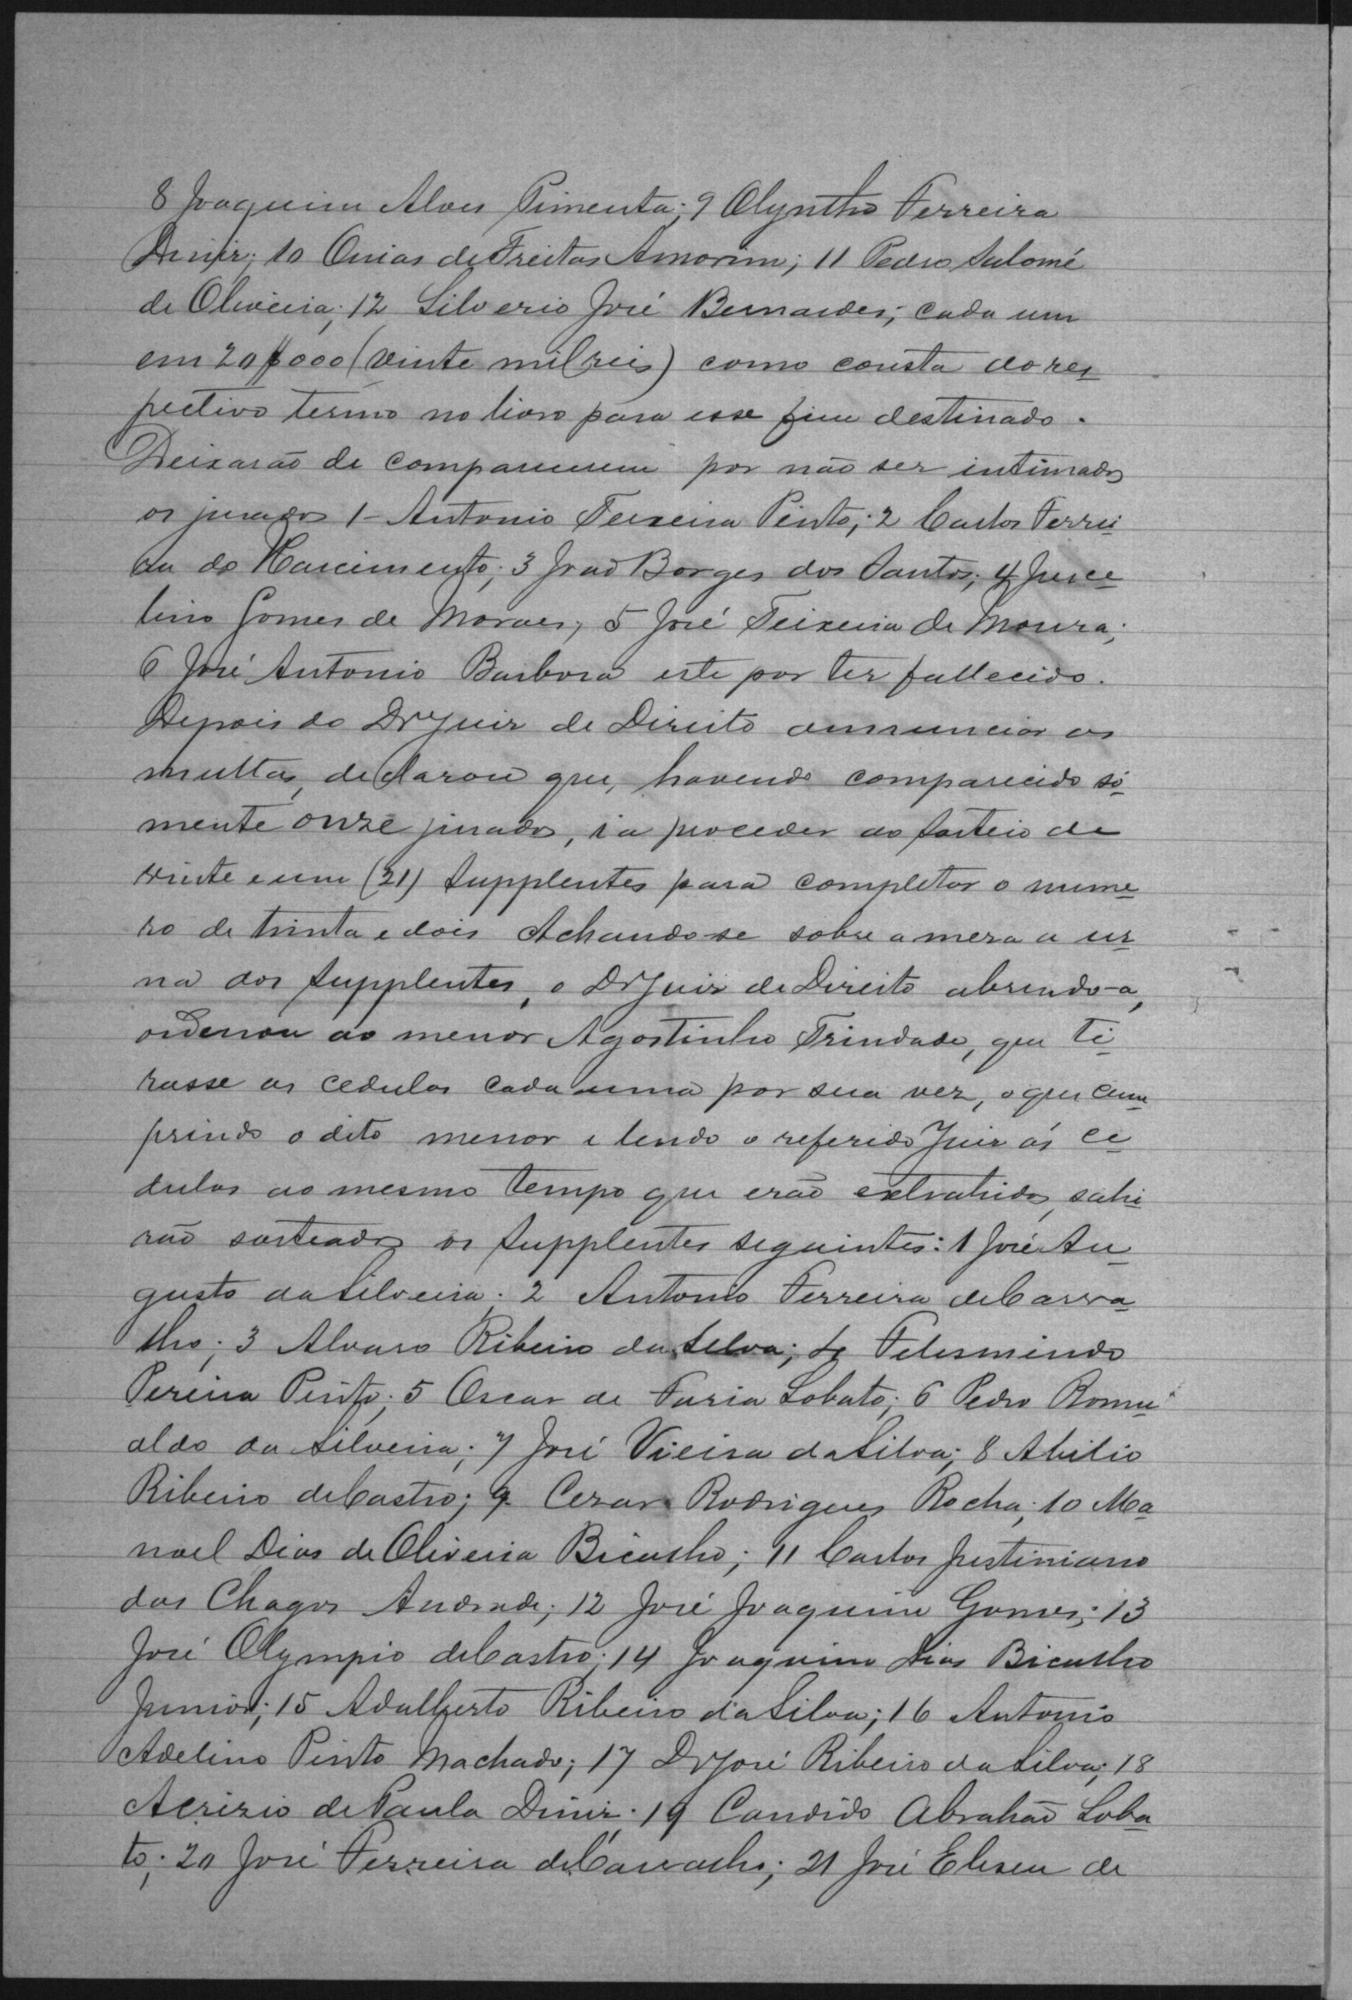 8 Joaquim Alves Pimenta; 9 Olyntho Ferreira
Diniz; 10 Onias de Freitas Amorim; 11 Pedro Salomé
de Oliveira; 12 Silverio José Bernardes; cada um
em 20$000 (vinte mil reis) como consta do res
pectivo termo no livro para esse fim destinado.
Deixarão de comparecerem por não ser intimados
os jurados 1- Antonio Teixeira Pinto; 2 Carlos Ferrei
ra do Nascimento; 3 João Borges dos Santos; 4 Jusce
lino Gomes de Moraes; 5 José Teixeira de Moura;
6 José Antonio Barbosa este por ter fallecido.
Depois do Dr Juiz de Direito annunciar as
multas, declarou que, havendo comparecido só
mente onze jurados, ia proceder ao sorteio de
vinte e um (21) supplentes para completar o nume
ro de trinta e dois Achando-se sobre a meza a ur
na dos supplentes, o Dr Juiz de Direito abrindo-a,
ordenou ao menor Agostinho Trindade, que ti
rasse as cedulas cada uma por sua vez, o que cum
prindo o dito menor e lendo o referido Juiz ás ce
dulas ao mesmo tempo que erão extrahidas, sahi
rão sorteados os supplentes seguintes: 1 José Au
gusto da Silveira; 2 Antonio Ferreira de Carva
lho; 3 Alvaro Ribeiro da Silva; 4 Felesmindo
Pereira Pinto; 5 Oscar de Faria Lobato; 6 Pedro Romu
aldo da Silveira; 7 José Vieira da Silva; 8 Abilio
Ribeiro de Castro; 9 Cezar Rodrigues Rocha; 10 Ma
noel Dias de Oliveira Bicalho; 11 Carlos Justiniano
das Chagas Andrade; 12 José Joaquim Gomes; 13
José Olympio de Castro; 14 Joaquim Dias Bicalho
Junior; 15 Adalberto Ribeiro da Silva; 16 Antonio
Adelino Pinto Machado; 17 Dr José Ribeiro da Silva; 18
Acrizio de Paula Diniz; 19 Candido Abrahão Loba
to; 20 José Ferreira de Carvalho; 21 José Eliseu de